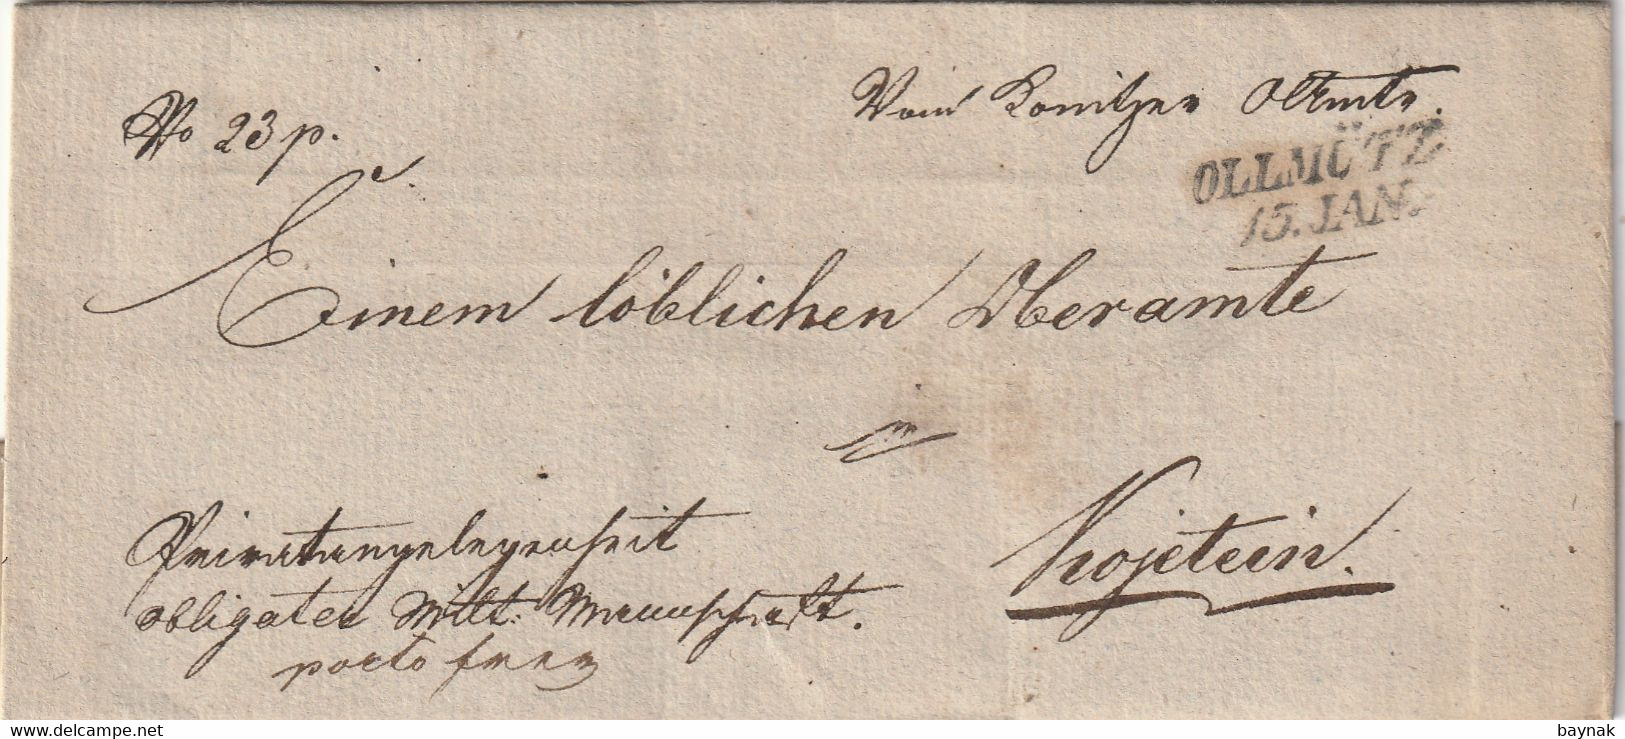 No 23 p.
Vom Konitzer OAmte.
OLLMÜTZ
15. JAN.
Einem löblichen Oberamte
in
Kojetein.
Privatangelegenheit
obligater Milt: Mannschaft.
porto frey
www.delcampe.net
baynak